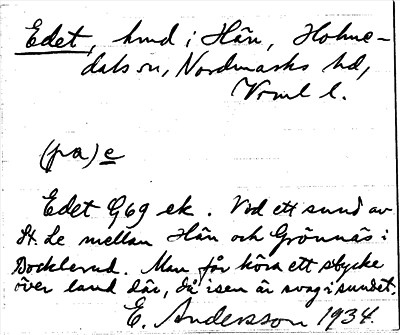 Edet, hmd i Hån, Holme-
dals sn, Nordmarks hd,
Vrml l.
(på) e
Edet G69 ek. Vid ett sund av
St. Le mellan Hån och Grönnäs i
Bocklerud. Man får köra ett stycke
över land där, di isen är svag i sundet.
E. Andersson 1934